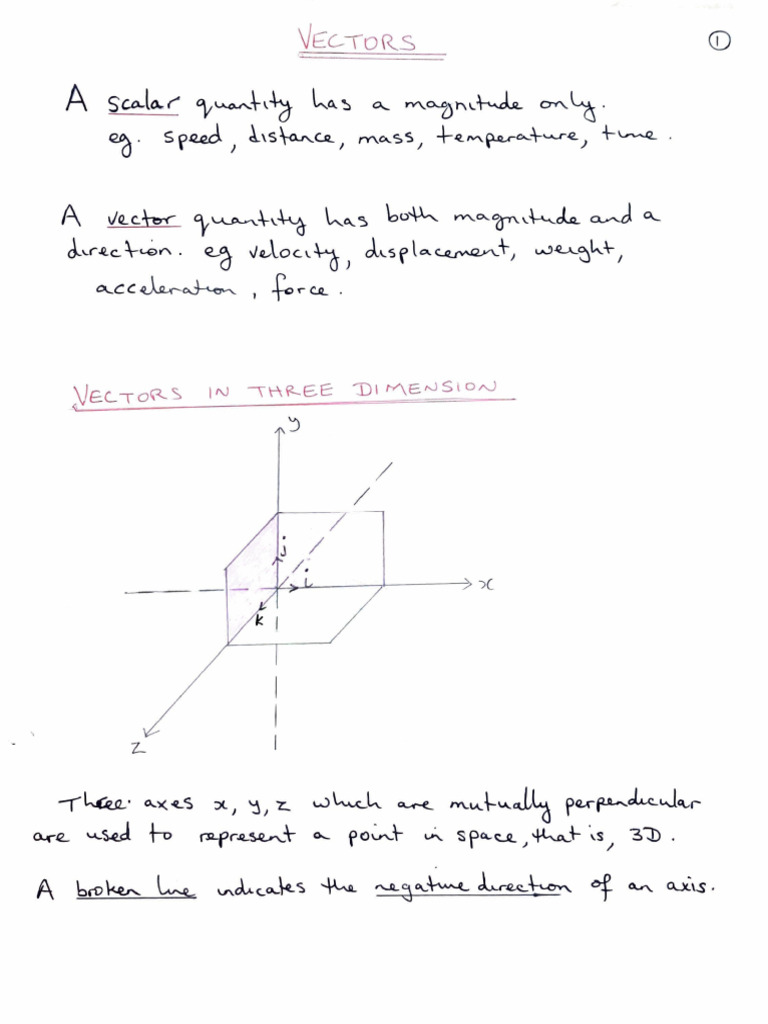 VECTORS
1
A scalar quantity has a magnitude only.
eg. speed, distance, mass, temperature, time.
A vector quantity has both magnitude and a
direction. eg velocity, displacement, weight,
acceleration, force.
VECTORS IN THREE DIMENSION
y
j
i
x
k
z
Three axes x, y, z which are mutually perpendicular
are used to represent a point in space, that is, 3D.
A broken line indicates the negative direction of an axis.